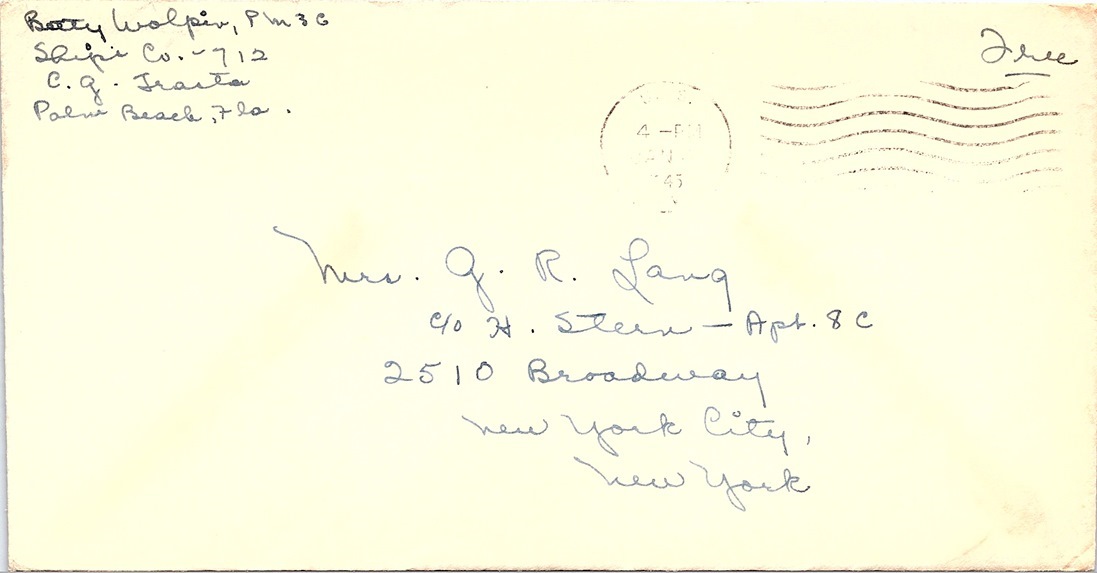 Betty Wolpin, PM3C
Ship's Co. - 712
C. G. Trasta
Palm Beach, Fla.
Free
4 - PM
JAN
1945
Mrs. G. R. Lang
c/o H. Stern - Apt. 8 C
2510 Broadway
New York City,
New York